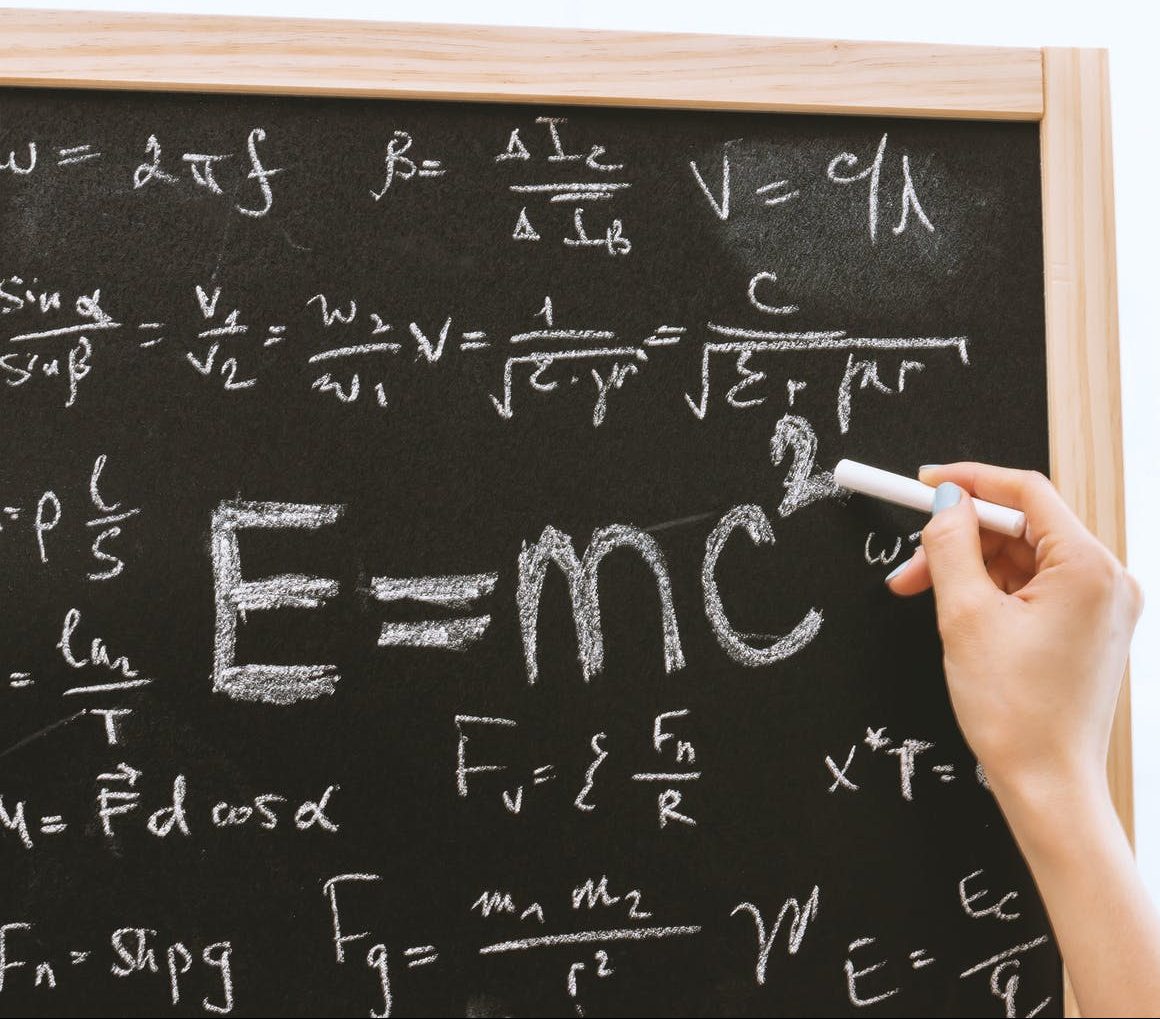 w = 2πf   β = ΔI_c / ΔI_B   V = c/λ
sin α / sin β = v_1 / v_2 = w_2 / w_1   V = 1 / √(ε·μ) = c / √(ε_r μ_r)
= ρ l/S
E = mc²
w
= ln_2 / T
F_v = { F_n / R
x*T =
= F⃗ d cos α
F_n = Shpg   F_g = m_1 m_2 / r²   E = E_c / q